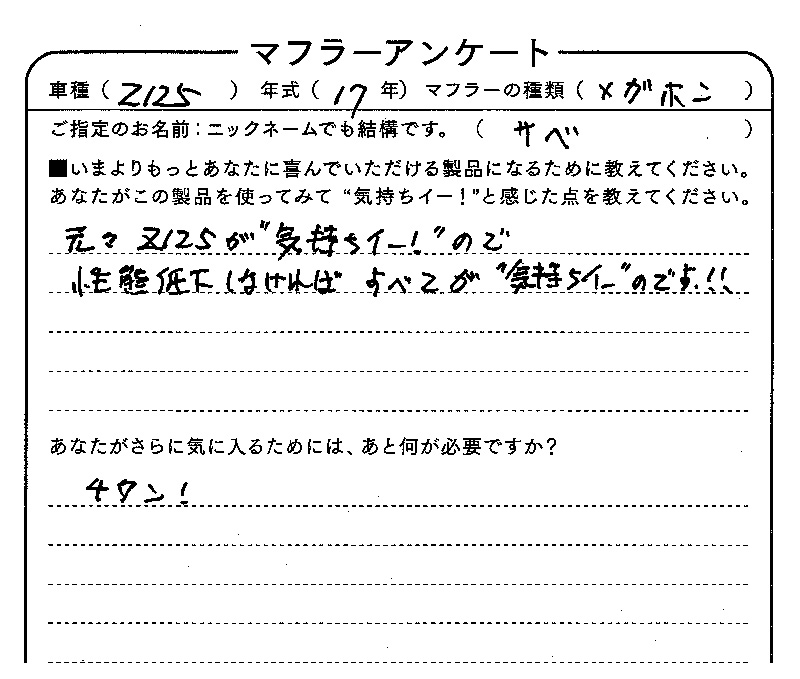 マフラーアンケート
車種（ Z125 ） 年式（ 17 年） マフラーの種類（ メガホン ）
ご指定のお名前：ニックネームでも結構です。（ サベ ）
■いまよりもっとあなたに喜んでいただける製品になるために教えてください。
あなたがこの製品を使ってみて“気持ちイー！”と感じた点を教えてください。
元々 Z125が“気持ちイー！”ので
性能低下しなければ すべてが “気持ちイー”のです!!
あなたがさらに気に入るためには、あと何が必要ですか？
チタン！